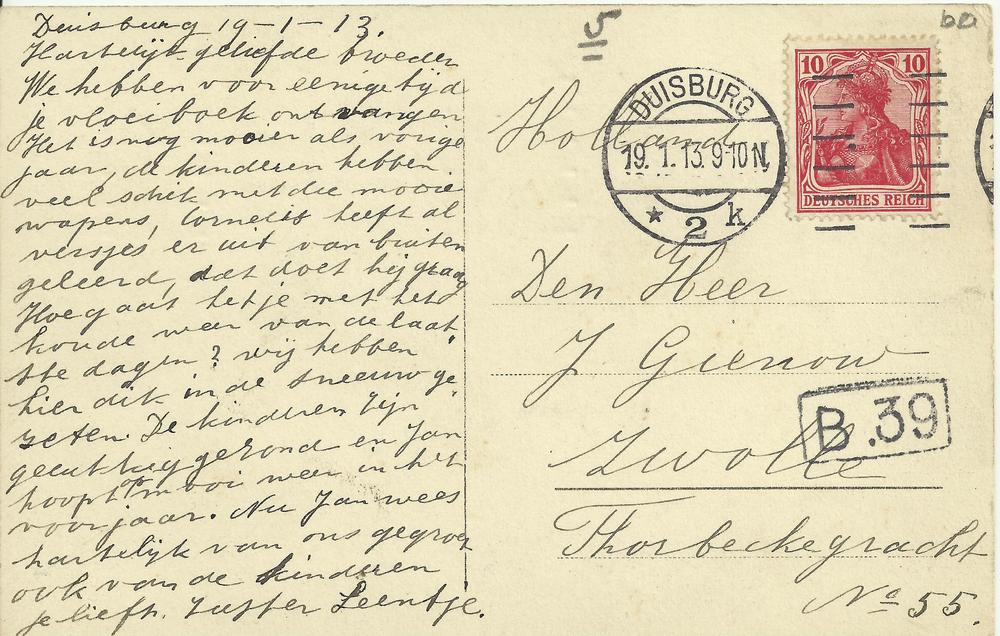 Duisburg 19-1-13.
Hartelijk geliefde broeder
We hebben voor eenige tijd
je vloeiboek ontvangen
Het is nog mooier als vorige
jaar, de kinderen hebben
veel schik met die mooie
wapens, Cornelis heeft al
versjes er uit van buiten
geleerd, dat doet hij graag
Hoe gaat het je met het
koude weer van de laat
ste dagen? wij hebben
hier dik in de sneeuw ge
zeten. De kinderen zijn
gelukkig gezond en Jan
hoopt mooi weer in het
voorjaar. Nu Jan wees
hartelijk van ons gegroet
ook van de kinderen
je liefh. Zuster Leentje.
115
60
Holland
DUISBURG
19.1.13.9-10N.
* 2 k
10 10
DEUTSCHES REICH
Den Heer
J Gienow
Zwolle
B.39
Thorbeckegracht
No 55.